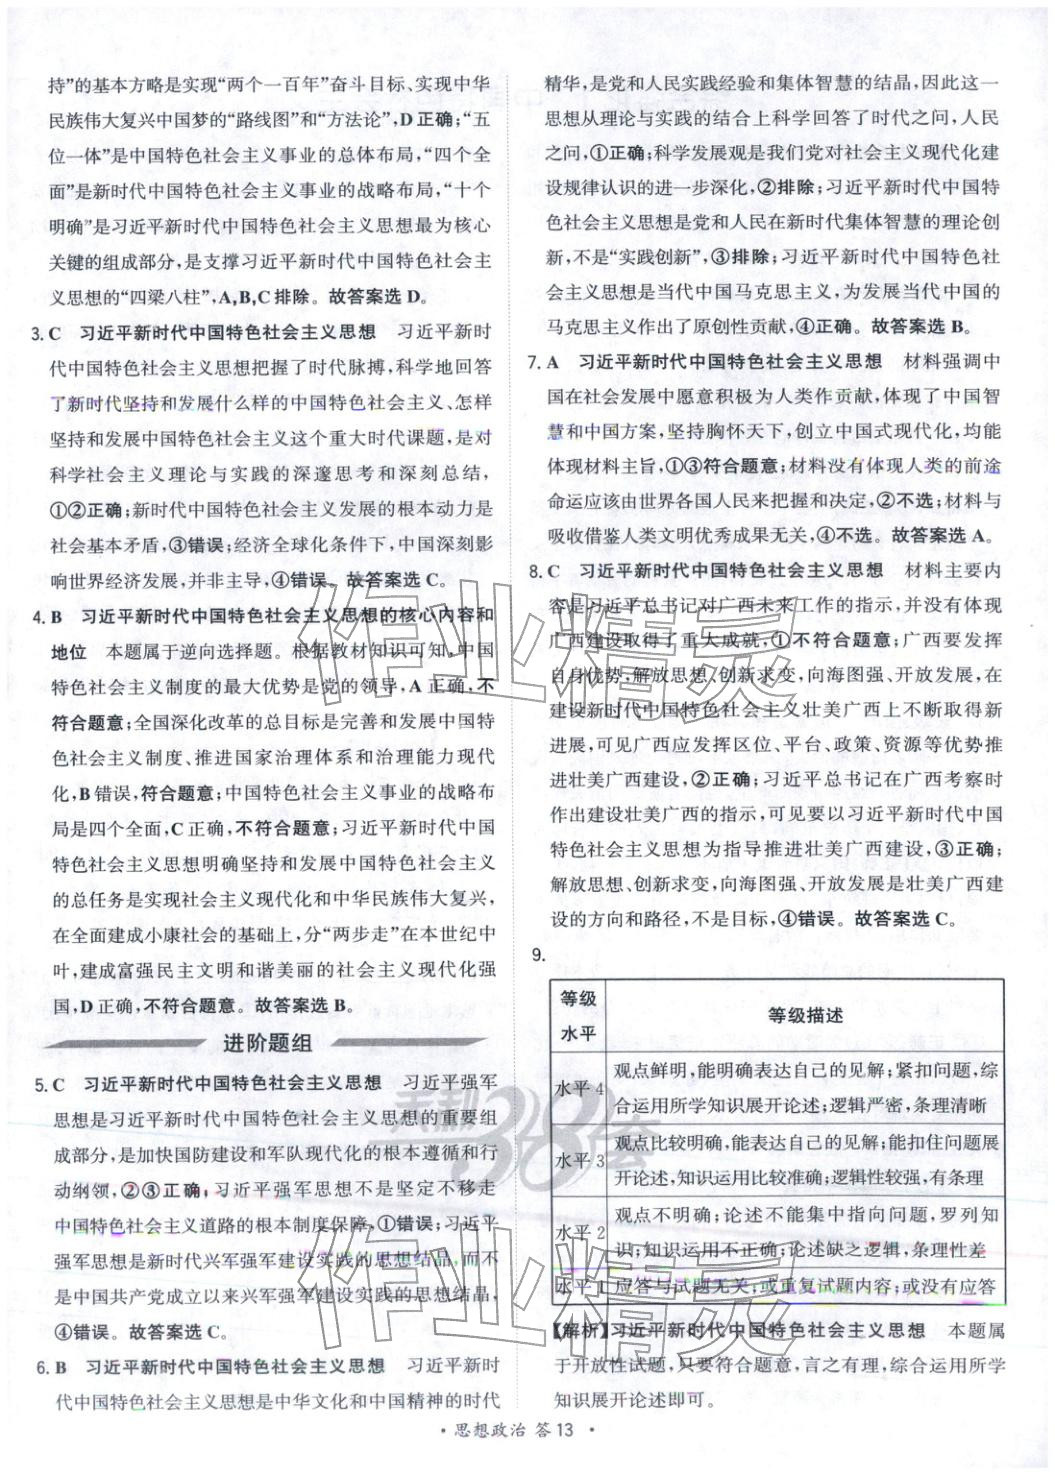 持”的基本方略是实现“两个一百年”奋斗目标、实现中华
民族伟大复兴中国梦的“路线图”和“方法论”,D正确;“五
位一体”是中国特色社会主义事业的总体布局,“四个全
面”是新时代中国特色社会主义事业的战略布局,“十个
明确”是习近平新时代中国特色社会主义思想最为核心
关键的组成部分,是支撑习近平新时代中国特色社会主
义思想的“四梁八柱”,A,B,C排除。故答案选D。
3. C 习近平新时代中国特色社会主义思想 习近平新时
代中国特色社会主义思想把握了时代脉搏,科学地回答
了新时代坚持和发展什么样的中国特色社会主义、怎样
坚持和发展中国特色社会主义这个重大时代课题,是对
科学社会主义理论与实践的深邃思考和深刻总结,
①②正确;新时代中国特色社会主义发展的根本动力是
社会基本矛盾,③错误;经济全球化条件下,中国深刻影
响世界经济发展,并非主导,④错误。故答案选C。
4. B 习近平新时代中国特色社会主义思想的核心内容和
地位 本题属于逆向选择题。根据教材知识可知,中国
特色社会主义制度的最大优势是党的领导,A正确,不
符合题意;全国深化改革的总目标是完善和发展中国特
色社会主义制度、推进国家治理体系和治理能力现代
化,B错误,符合题意;中国特色社会主义事业的战略布
局是四个全面,C正确,不符合题意;习近平新时代中国
特色社会主义思想明确坚持和发展中国特色社会主义
的总任务是实现社会主义现代化和中华民族伟大复兴,
在全面建成小康社会的基础上,分“两步走”在本世纪中
叶,建成富强民主文明和谐美丽的社会主义现代化强
国,D正确,不符合题意。故答案选B。
进阶题组
5. C 习近平新时代中国特色社会主义思想 习近平强军
思想是习近平新时代中国特色社会主义思想的重要组
成部分,是加快国防建设和军队现代化的根本遵循和行
动纲领,②③正确;习近平强军思想不是坚定不移走
中国特色社会主义道路的根本制度保障,①错误;习近平
强军思想是新时代兴军强军建设实践的思想结晶,而不
是中国共产党成立以来兴军强军建设实践的思想结晶,
④错误。故答案选C。
6. B 习近平新时代中国特色社会主义思想 习近平新时
代中国特色社会主义思想是中华文化和中国精神的时代
精华,是党和人民实践经验和集体智慧的结晶,因此这一
思想从理论与实践的结合上科学回答了时代之问,人民
之问,①正确;科学发展观是我们党对社会主义现代化建
设规律认识的进一步深化,②排除;习近平新时代中国特
色社会主义思想是党和人民在新时代集体智慧的理论创
新,不是“实践创新”,③排除;习近平新时代中国特色社
会主义思想是当代中国马克思主义,为发展当代中国的
马克思主义作出了原创性贡献,④正确。故答案选B。
7. A 习近平新时代中国特色社会主义思想 材料强调中
国在社会发展中愿意积极为人类作贡献,体现了中国智
慧和中国方案,坚持胸怀天下,创立中国式现代化,均能
体现材料主旨,①③符合题意;材料没有体现人类的前途
命运应该由世界各国人民来把握和决定,②不选;材料与
吸收借鉴人类文明优秀成果无关,④不选。故答案选A。
8. C 习近平新时代中国特色社会主义思想 材料主要内
容是习近平总书记对广西未来工作的指示,并没有体现
广西建设取得了重大成就,①不符合题意;广西要发挥
自身优势,解放思想、创新求变,向海图强、开放发展,在
建设新时代中国特色社会主义壮美广西上不断取得新
进展,可见广西应发挥区位、平台、政策、资源等优势推
进壮美广西建设,②正确;习近平总书记在广西考察时
作出建设壮美广西的指示,可见要以习近平新时代中国
特色社会主义思想为指导推进壮美广西建设,③正确;
解放思想、创新求变,向海图强、开放发展是壮美广西建
设的方向和路径,不是目标,④错误。故答案选C。
9.
等级水平 等级描述
水平4 观点鲜明,能明确表达自己的见解;紧扣问题,综
合运用所学知识展开论述;逻辑严密,条理清晰
水平3 观点比较明确,能表达自己的见解;能扣住问题展
开论述,知识运用比较准确;逻辑性较强,有条理
水平2 观点不明确;论述不能集中指向问题,罗列知
识;知识运用不正确;论述缺乏逻辑,条理性差
水平1 应答与试题无关;或重复试题内容;或没有应答
【解析】习近平新时代中国特色社会主义思想 本题属
于开放性试题,只要符合题意,言之有理,综合运用所学
知识展开论述即可。
· 思想政治 答13 ·
作业精灵
天利38套
作业精灵